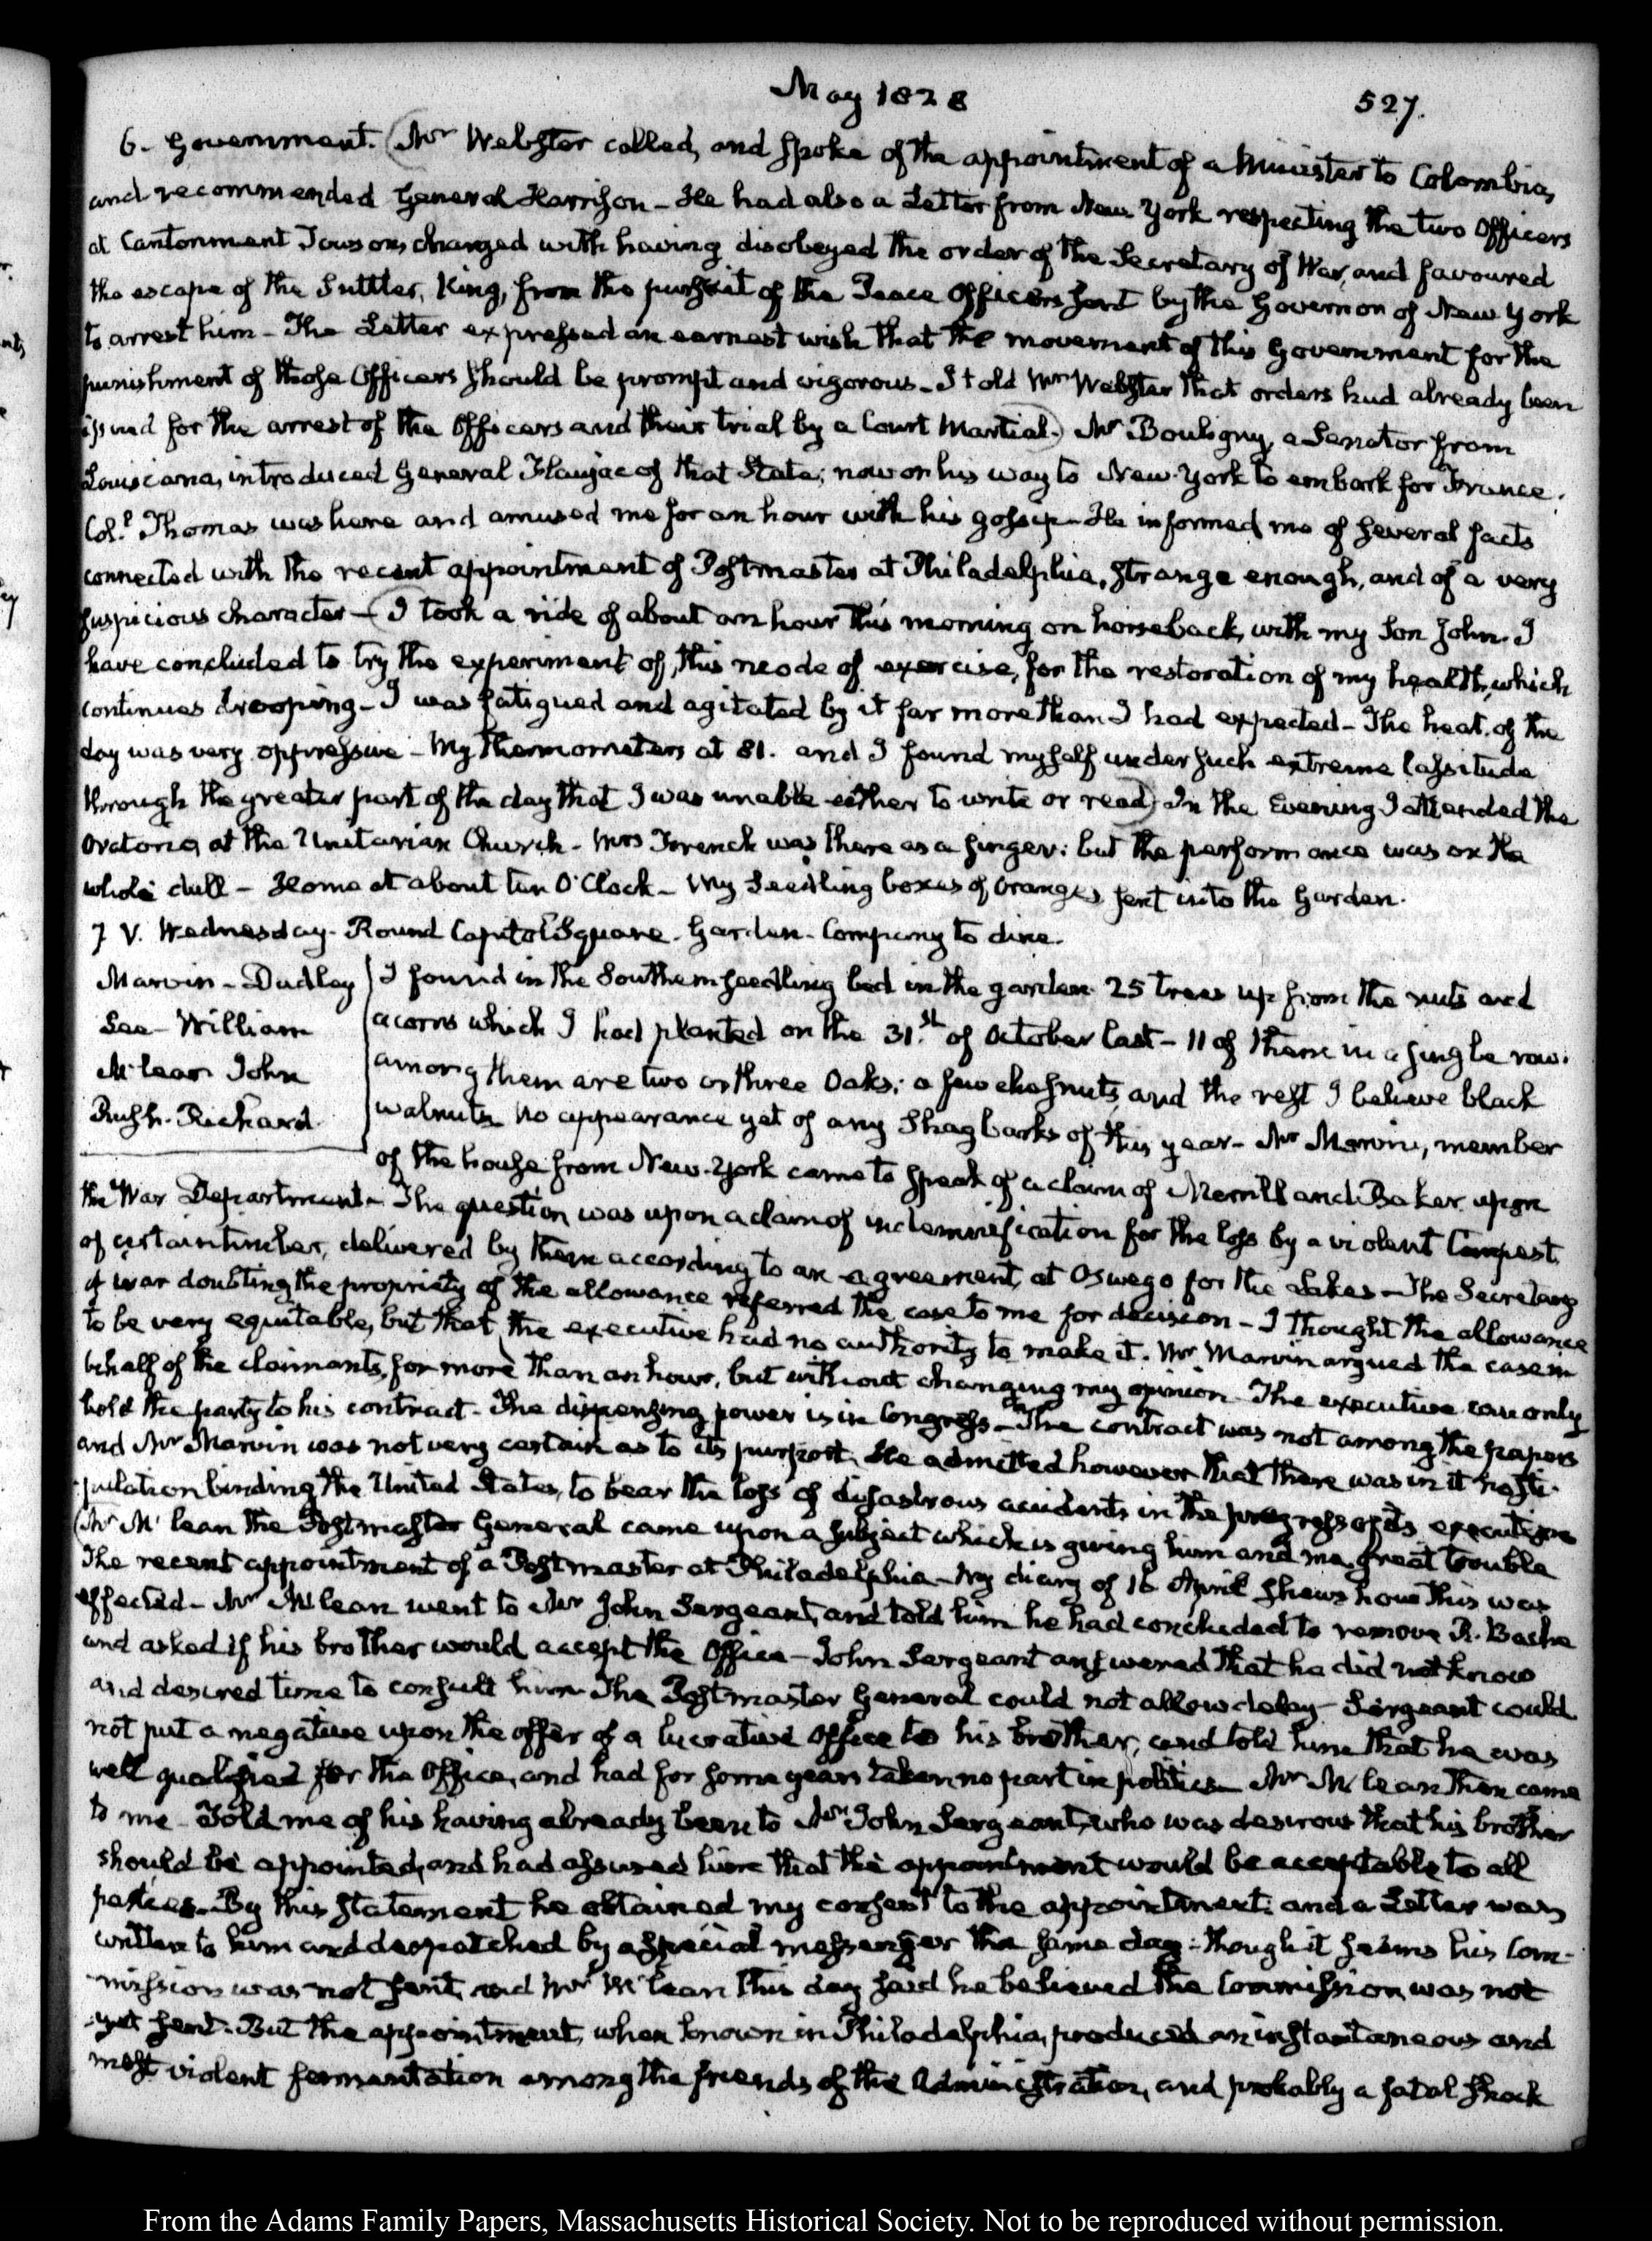 May 1828
527.
6. Government. (Mr Webster called, and spoke of the appointment of a Minister to Colombia,
and recommended General Harrison - He had also a Letter from New York respecting the two Officers
at Cantonment Towson, charged with having disobeyed the order of the Secretary of War, and favoured
the escape of the Suttler, King, from the pursuit of the Peace Officers sent by the Governor of New York
to arrest him - The Letter expressed an earnest wish that the movement of this Government for the
punishment of those Officers should be prompt and vigorous - I told Mr Webster that orders had already been
issued for the arrest of the Officers and their trial by a Court Martial.) Mr Bouligny, a Senator from
Louisiana, introduced General Flaujac of that State; now on his way to New-York to embark for France.
Coll. Thomas was here and amused me for an hour with his gossip - He informed me of several facts
connected with the recent appointment of Postmaster at Philadelphia, strange enough, and of a very
suspicious character - (I took a ride of about an hour this morning on horseback, with my Son John. I
have concluded to try the experiment of, this mode of exercise, for the restoration of my health, which
continues drooping - I was fatigued and agitated by it far more than I had expected - The heat of the
day was very oppressive - My Thermometers at 81. and I found myself under such extreme lassitude
through the greater part of the day that I was unable either to write or read) In the Evening I attended the
Oratorio, at the Unitarian Church - Mrs French was there as a singer: but the performance was on the
whole dull - Home at about ten O'Clock - My Seedling boxes of Oranges, sent into the Garden.
7 V. Wednesday. Round Capitol Square. Garden. Company to dine.
Marvin - Dudley
Lee - William
McLean John
Rush. Richard.
I found in the Southern seedling bed in the garden 25 trees up from the nuts and
acorns which I had planted on the 31.st of October last - 11 of them in a single row.
among them are two or three Oaks; a few chesnuts, and the rest I believe black
walnuts. No appearance yet of any Shagbarks of this year - Mr Marvin, member
of the house from New-York came to speak of a claim of Merrill and Baker upon
the War Department - The question was upon a claim of indemnification for the loss by a violent tempest,
of certain timber, delivered by them according to an agreement, at Oswego for the Lakes - The Secretary
of War doubting the propriety of the allowance referred the case to me for decision - I thought the allowance
to be very equitable, but that the executive had no authority to make it. Mr Marvin argued the case in
behalf of the claimants, for more than an hour, but without changing my opinion - The executive can only
hold the party to his contract - The dispensing power is in Congress - The contract was not among the papers
and Mr Marvin was not very certain as to its purport. He admitted however that there was in it no sti-
pulation binding the United States, to bear the loss of disastrous accidents in the progress of its execution
(Mr McLean the Postmaster General came upon a subject which is giving him and me great trouble
The recent appointment of a Postmaster at Philadelphia - My diary of 16 April shews how this was
effected - Mr McLean went to Mr John Sergeant, and told him he had concluded to remove R. Bache
and asked if his brother would accept the Office - John Sergeant answered that he did not know
and desired time to consult him - The Postmaster General could not allow delay - Sergeant could
not put a negative upon the offer of a lucrative Office to his brother, and told him that he was
well qualified for the Office, and had for some years taken no part in politics - Mr McLean then came
to me - Told me of his having already been to Mr John Sergeant, who was desirous that his brother
should be appointed, and had assured him that the appointment would be acceptable to all
parties - By this statement he obtained my consent to the appointment: and a Letter was
written to him and despatched by a special messenger the same day: though it seems his Com-
mission was not sent, and Mr McLean this day said he believed the Commission was not
yet sent. But the appointment, when known in Philadelphia, produced an instantaneous and
most violent fermentation among the friends of the Administration, and probably a fatal shock
From the Adams Family Papers, Massachusetts Historical Society. Not to be reproduced without permission.